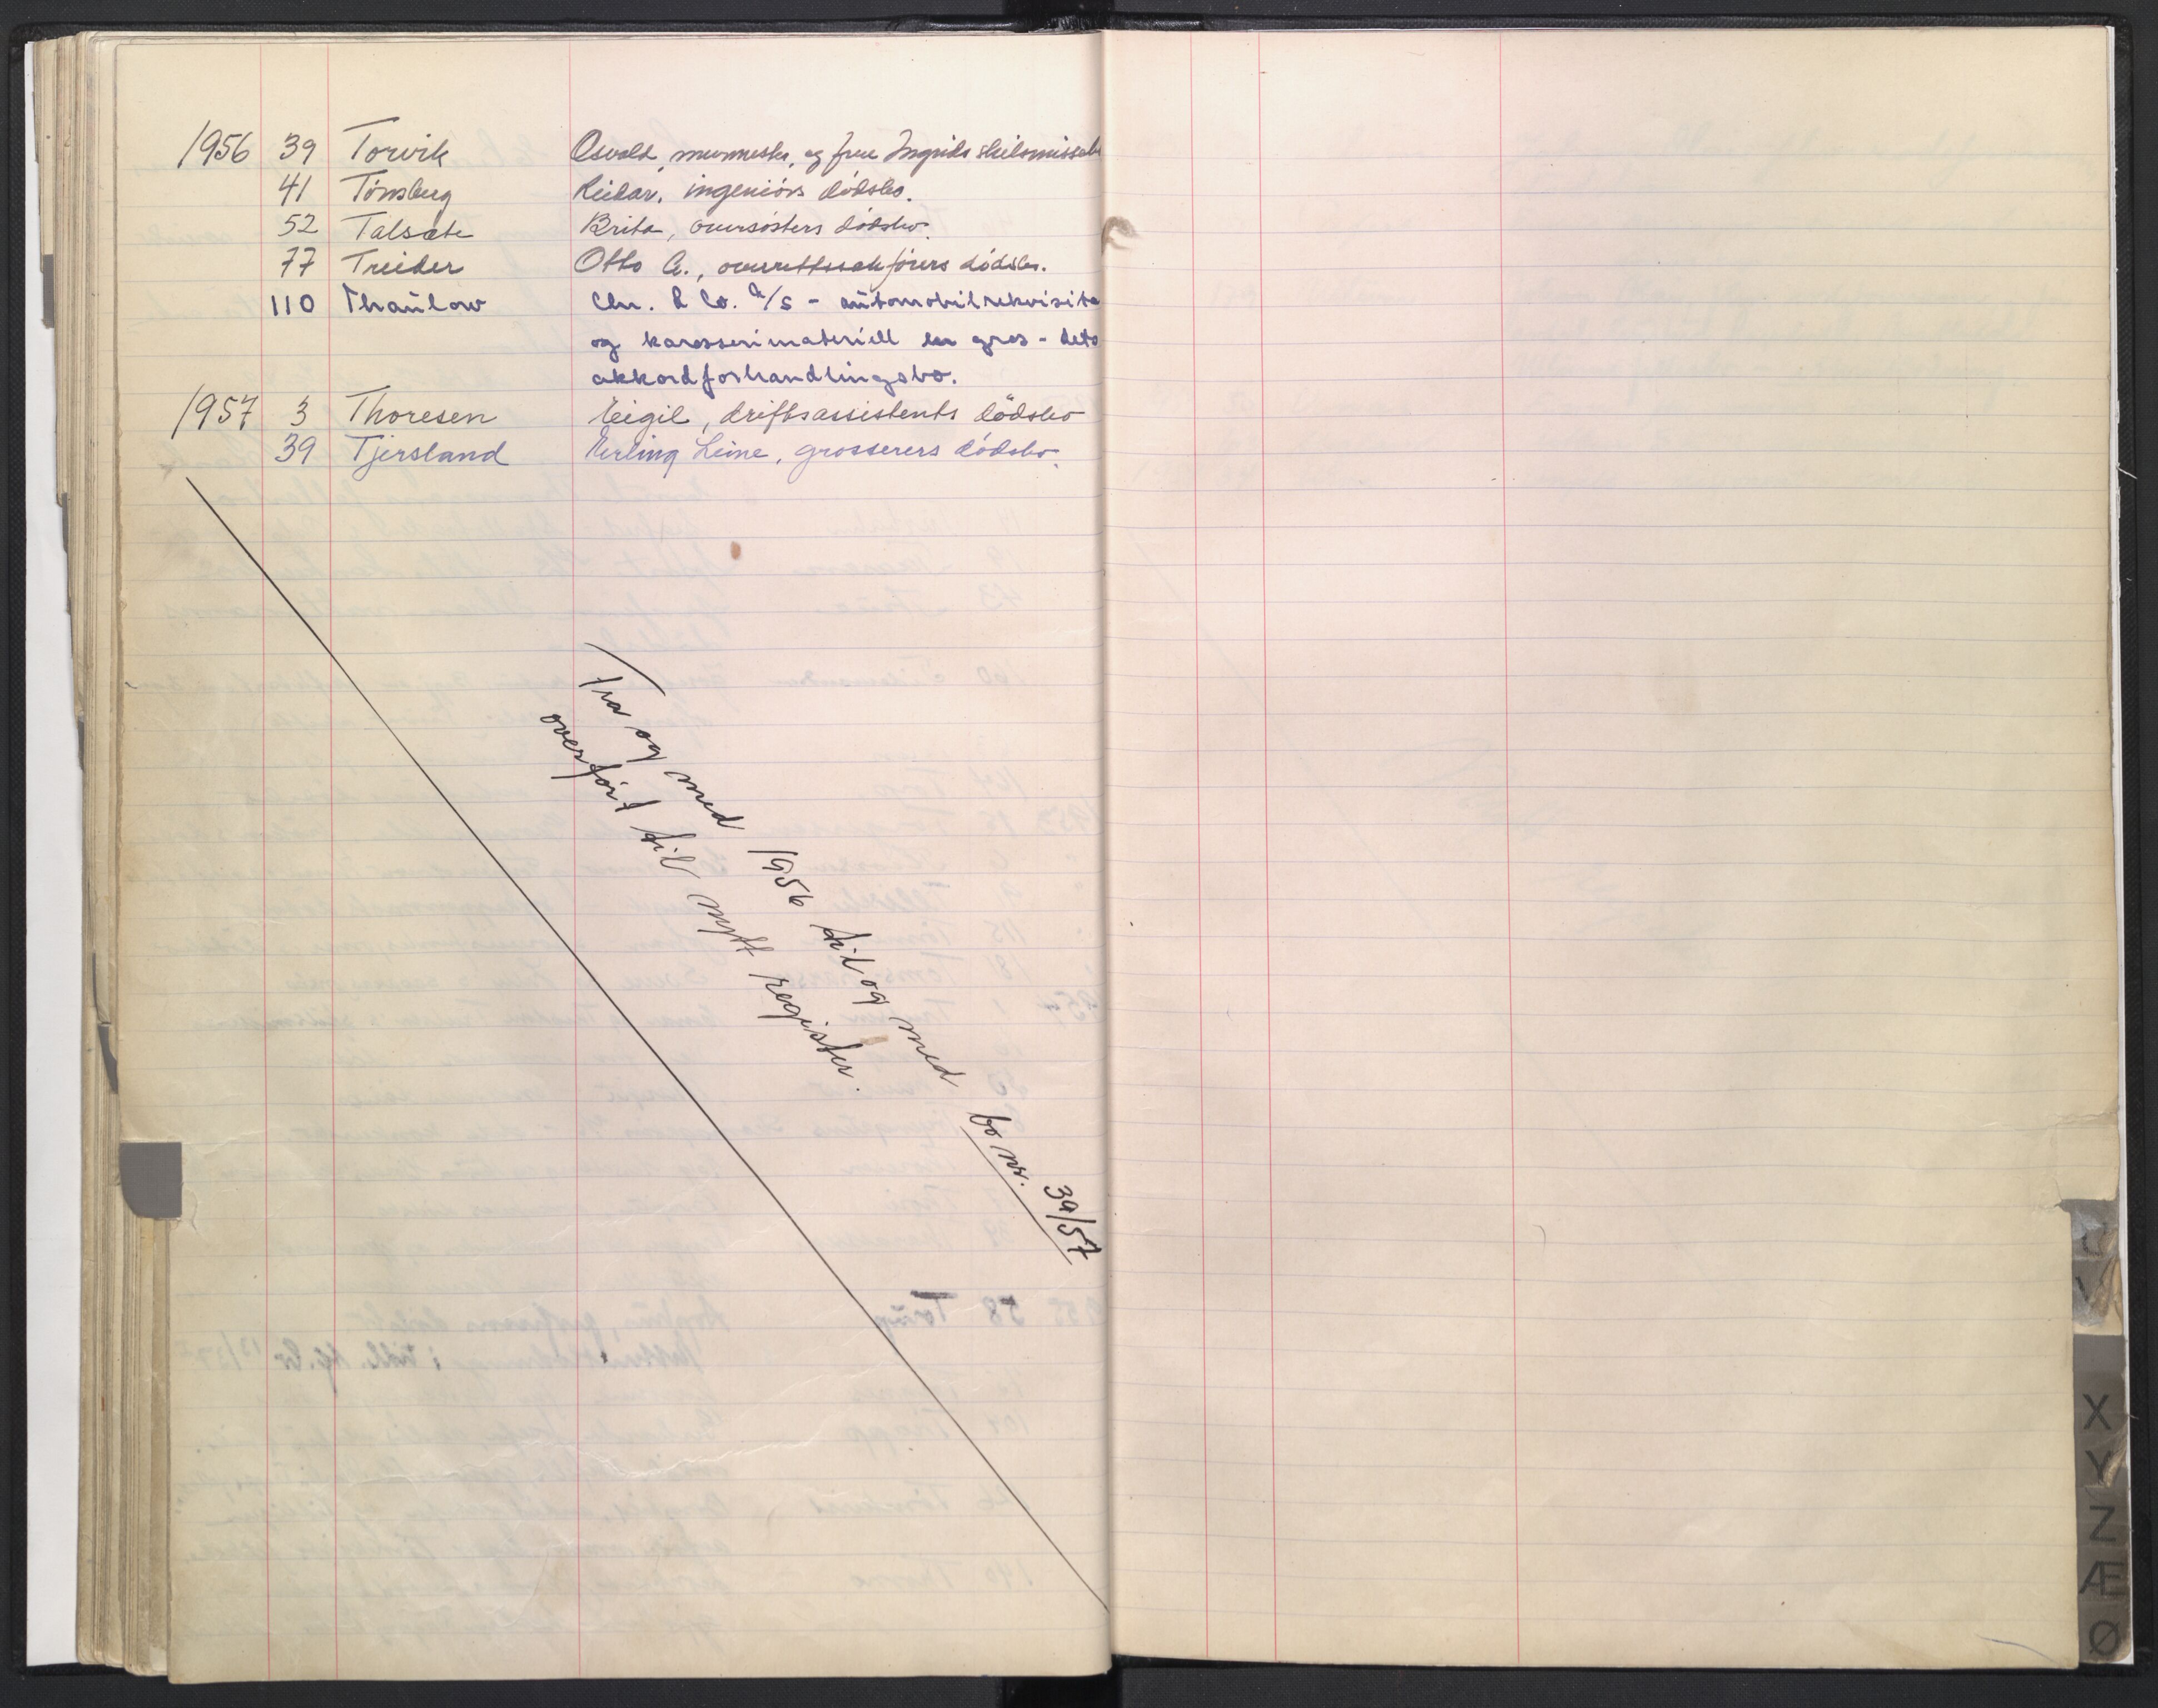 1956 39 Torvik Osvald, murmester, og frue Ingrids skilsmissebo
41 Tönsberg Reidar, ingeniörs dödsbo.
52 Talsete Brita, oversösters dödsbo.
77 Treider Otto G., overrettssakförers dödsbo.
110 Thaulow Chr. & Co. A/S - automobilrekvisita
og karosserimateriell en gros - dets
akkordforhandlingsbo.
1957 3 Thoresen Eigil, driftsassistents dödsbo
39 Tjersland Erling Leine, grosserers dödsbo.
Fra og med 1956 til og med bo nr. 39/57
overfört til nytt register.
V
X
Y
Z
Æ
Ø